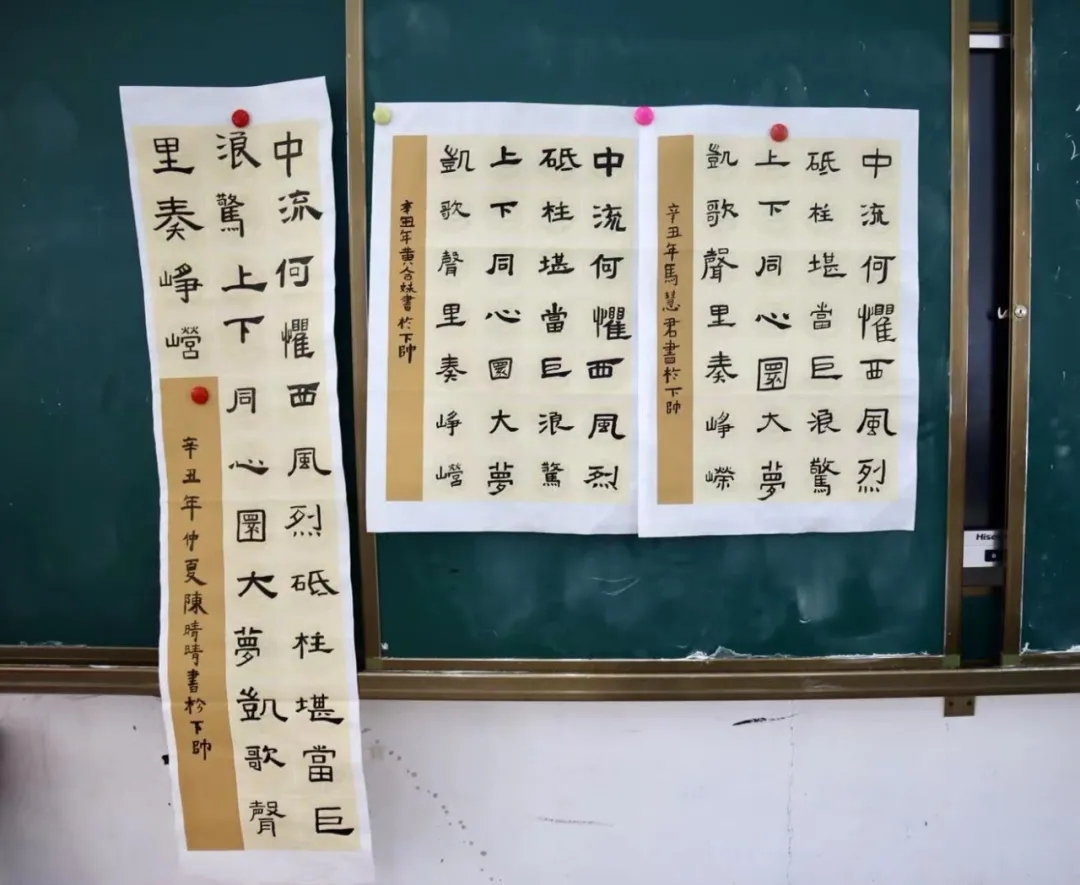 中流何懼西風烈砥柱堪當巨
浪驚上下同心圓大夢凱歌聲
里奏崢巆
辛丑年仲夏陳晴晴書於下帥
中流何懼西風烈
砥柱堪當巨浪驚
上下同心圓大夢
凱歌聲里奏崢巆
辛丑年黃妹書於下帥
中流何懼西風烈
砥柱堪當巨浪驚
上下同心圓大夢
凱歌聲里奏崢嶸
辛丑年馬慧君書於下帥
Hise